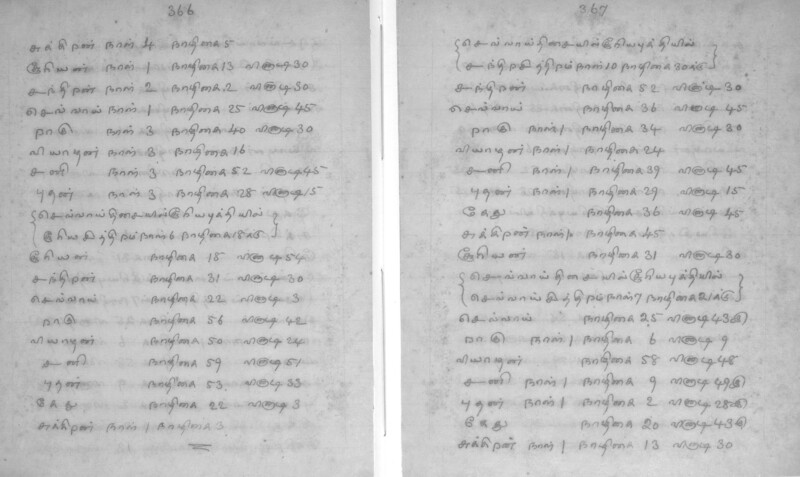 366
சுக்கிறன் நாள் 4 நாழிகை 5
சூரியன் நாள் 1 நாழிகை 13 வினாடி 30
சந்திரன் நாள் 2 நாழிகை 2 வினாடி 30
செவ்வாய் நாள் 1 நாழிகை 25 வினாடி 45
றாகு நாள் 3 நாழிகை 40 வினாடி 30
வியாழன் நாள் 3 நாழிகை 16
சனி நாள் 3 நாழிகை 52 வினாடி 45
புதன் நாள் 3 நாழிகை 28 வினாடி 15
செவ்வாய் திசையில் சூரியபுத்தியில்
நாள் 6 நாழிகை 18
சூரியன் நாழிகை 18 வினாடி 54
சந்திரன் நாழிகை 31 வினாடி 30
செவ்வாய் நாழிகை 22 வினாடி 3
றாகு நாழிகை 56 வினாடி 42
வியாழன் நாழிகை 50 வினாடி 24
சனி நாழிகை 59 வினாடி 51
புதன் நாழிகை 53 வினாடி 33
கேது நாழிகை 22 வினாடி 3
சுக்கிறன் நாள் 1 நாழிகை 3
367
செவ்வாய்திசையில் சூரியபுத்தியில்
நாள் 10 நாழிகை 30
சந்திரன் நாழிகை 52 வினாடி 30
செவ்வாய் நாழிகை 36 வினாடி 45
றாகு நாள் 1 நாழிகை 34 வினாடி 30
வியாழன் நாள் 1 நாழிகை 24
சனி நாள் 1 நாழிகை 39 வினாடி 45
புதன் நாள் 1 நாழிகை 29 வினாடி 15
கேது நாழிகை 36 வினாடி 45
சுக்கிறன் நாள் 1 நாழிகை 45
சூரியன் நாழிகை 31 வினாடி 30
செவ்வாய் திசையில் சூரியபுத்தியில்
செவ்வாய் நாள் 7 நாழிகை 21
செவ்வாய் நாழிகை 25 வினாடி 43
றாகு நாள் 1 நாழிகை 6 வினாடி 9
வியாழன் நாழிகை 58 வினாடி 48
சனி நாள் 1 நாழிகை 9 வினாடி 49
புதன் நாள் 1 நாழிகை 2 வினாடி 28
கேது நாழிகை 20 வினாடி 43
சுக்கிறன் நாள் 1 நாழிகை 13 வினாடி 30